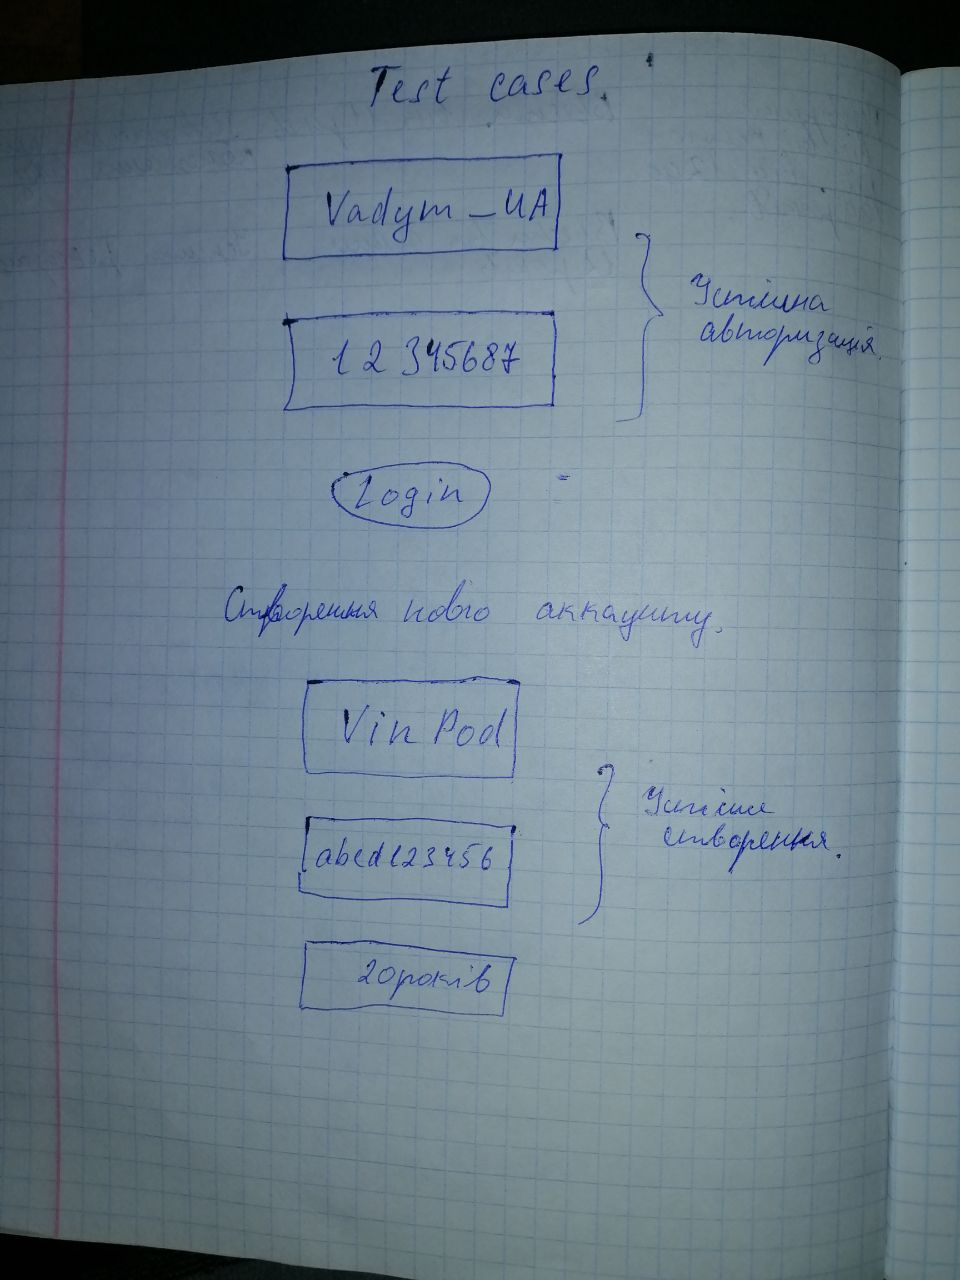 Test cases.
Vadym_UA
12345687
Успішна
авторизація.
Login
Створення нового аккаунту.
Vin Pod
abcd123456
Успішне
створення.
20років